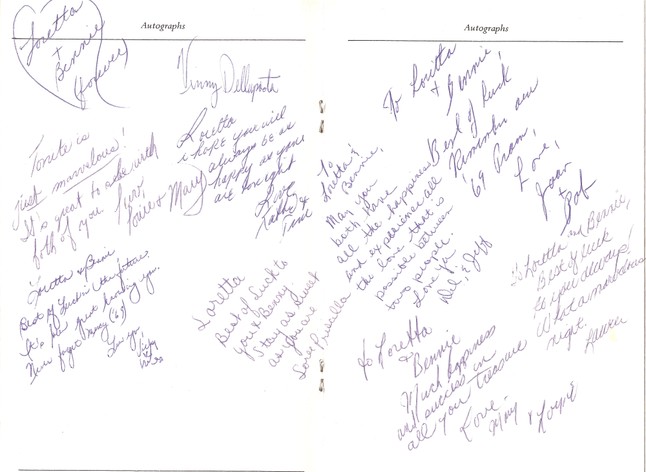 Autographs
Loretta
+
Bennie
(forever)
Vinny
Tonite is
just marvelous!
It's great to be with
both of you. Luv,
& Mary
Loretta
I hope you will
always be as
happy as you
are tonight
Love
Kathy &
Loretta & Bennie
Best of Luck
It's been great knowing you.
Never forget
Luv ya,
Loretta
Best of Luck to
you & Benny
Stay as Sweet
as you are
Love Priscilla
Autographs
To Loretta
& Bennie,
Best of luck
Remember our
'69 Prom,
Love,
Joan
+
Bob
To
Loretta &
Bennie,
May you
both have
all the happiness
and experience all
the love that is
possible between
two people.
Love Ya
& Jeff
To Loretta and Bennie,
Best of luck
to you always!
What a marvelous
night.
To Loretta
&
Bennie
Much happiness
and success in
all you treasure
Love
Mary &